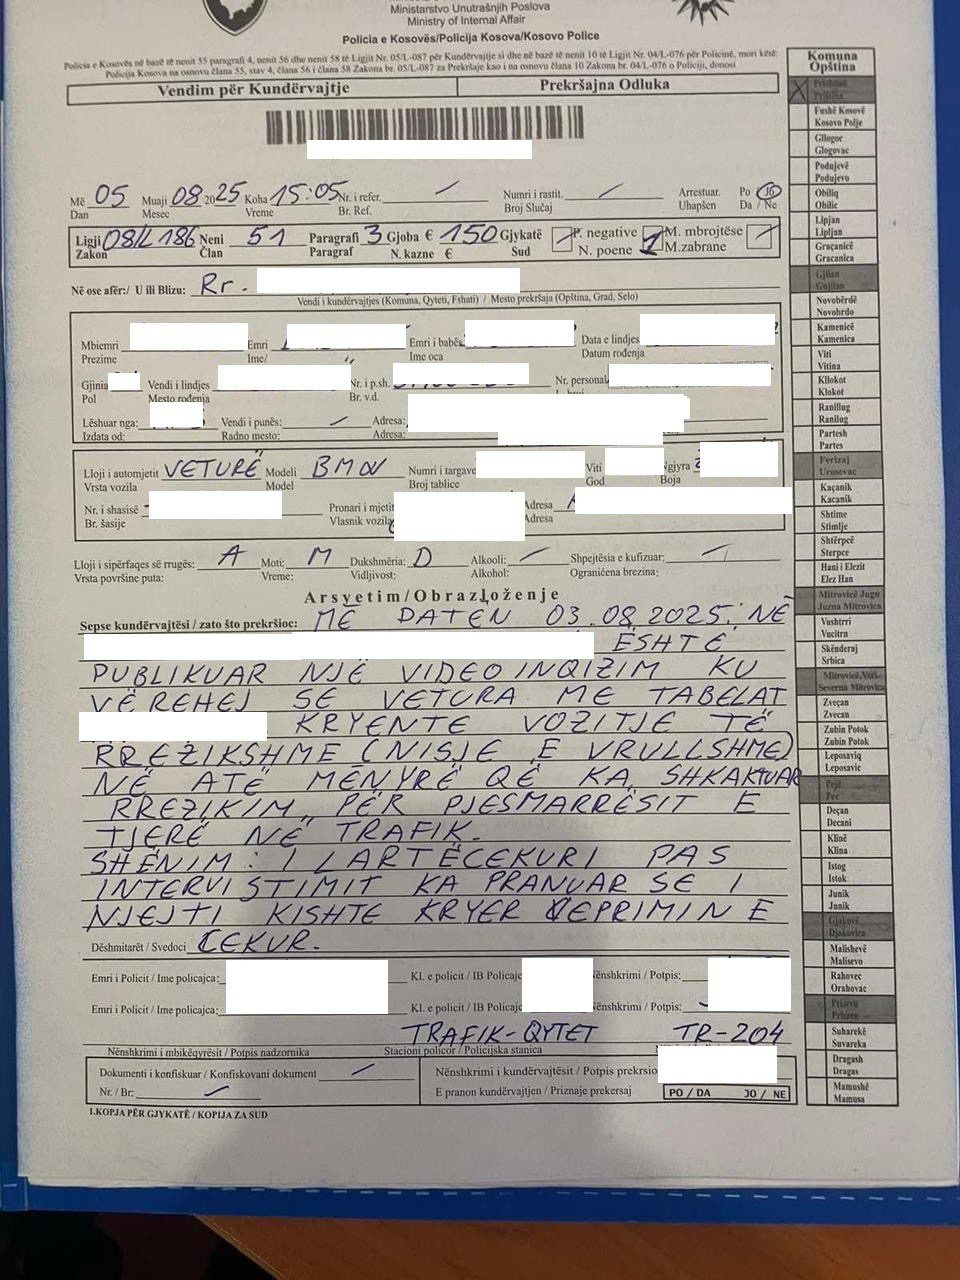 Ministarstvo Unutrašnjih Poslova
Ministry of Internal Affair
Policia e Kosovës/Policija Kosova/Kosovo Police
Policia e Kosovës në bazë të nenit 55 paragrafi 4, nenit 56 dhe nenit 58 të Ligjit Nr. 05/L-087 për Kundërvajtje si dhe në bazë të nenit 10 të Ligjit Nr. 04/L-076 për Policinë, mori këtë:
Policija Kosova na osnovu člana 55, stav 4, člana 56 i člana 58 Zakona br. 05/L-087 za Prekršaje kao i na osnovu člana 10 Zakona br. 04/L-076 o Policiji, donosi
Vendim për Kundërvajtje Prekršajna Odluka
Më 05 Muaji 08 2025 Koha 15:05 Nr. i refer. Numri i rastit. Arrestuar. Po Jo
Dan Mesec Vreme Br. Ref. Broj Slučaj Uhapšen Da / Ne
Ligji 08/L 186 Neni 51 Paragrafi 3 Gjoba € 150 Gjykatë P. negative 1 M. mbrojtëse
Zakon Član Paragraf N. kazne € Sud N. poene M.zabrane
Në ose afër:/ U ili Blizu: Rr.
Vendi i kundërvajtjes (Komuna, Qyteti, Fshati) / Mesto prekršaja (Opština, Grad, Selo)
Mbiemri Emri Emri i babës Data e lindjes
Prezime Ime/ Ime oca Datum rođenja
Gjinia Vendi i lindjes Nr. i p.sh. Nr. personal
Pol Mesto rođenja Br. v.d.
Lëshuar nga: Vendi i punës: Adresa:
Izdata od: Radno mesto: Adresa:
Lloji i automjetit VETURË Modeli BMW Numri i targave Viti Ngjyra
Vrsta vozila Model Broj tablice God Boja
Nr. i shasisë Pronari i mjetit Adresa
Br. šasije Vlasnik vozila Adresa
Lloji i sipërfaqes së rrugës: A Moti: M Dukshmëria: D Alkooli: Shpejtësia e kufizuar:
Vrsta površine puta: Vreme: Vidljivost: Alkohol: Ograničena brezina:
Arsyetim/Obrazloženje
Sepse kundërvajtësi / zato što prekršioc: MË DATËN 03.08.2025. NË
ËSHTË
PUBLIKUAR NJË VIDEOINQIZIM KU
VËREHEJ SE VETURA ME TABELAT
KRYENTE VOZITJE TË
RREZIKSHME (NISJE E VRULLSHME)
NË ATË MËNYRË QË KA SHKAKTUAR
RREZIKIM PËR PJESMARRËSIT E
TJERË NË TRAFIK.
SHËNIM: I LARTËCEKURI PAS
INTERVISTIMIT KA PRANUAR SE I
NJEJTI KISHTE KRYER VEPRIMIN E
Dëshmitarët / Svedoci CEKUR.
Emri i Policit / Ime policajca: Kl. e policit / IB Policaje Nënshkrimi / Potpis:
Emri i Policit / Ime policajca: Kl. e policit / IB Policaje Nënshkrimi / Potpis:
TRAFIK-QYTET TR-204
Nënshkrimi i mbikëqyrësit / Potpis nadzornika Stacioni policor / Policijska stanica
Dokumenti i konfiskuar / Konfiskovani dokument Nënshkrimi i kundërvajtësit / Potpis prekrsio
Nr. / Br: E pranon kundërvajtjen / Priznaje prekersaj PO / DA JO / NE
1.KOPJA PËR GJYKATË / KOPIJA ZA SUD
Komuna
Opština
Prishtinë
Priština
Fushë Kosovë
Kosovo Polje
Gllogoc
Glogovac
Podujevë
Podujevo
Obiliq
Obilic
Lipjan
Lipljan
Graçanicë
Gracanica
Gjilan
Gnjilan
Novobërdë
Novobrdo
Kamenicë
Kamenica
Viti
Vitina
Kllokot
Klokot
Ranillug
Ranilug
Partesh
Partes
Ferizaj
Urosevac
Kaçanik
Kacanik
Shtime
Stimlje
Shtërpcë
Sterpce
Hani i Elezit
Elez Han
Mitrovicë Jugu
Juzna Mitrovica
Vushtrri
Vucitrn
Skënderaj
Srbica
Mitrovicë Veri
Severna Mitrovica
Zveçan
Zvecan
Zubin Potok
Zubin Potok
Leposaviq
Leposavic
Pejë
Pec
Deçan
Decani
Klinë
Klina
Istog
Istok
Junik
Junik
Gjakovë
Djakovica
Malishevë
Malisevo
Rahovec
Orahovac
Prizren
Prizren
Suharekë
Suvareka
Dragash
Dragas
Mamushë
Mamusa